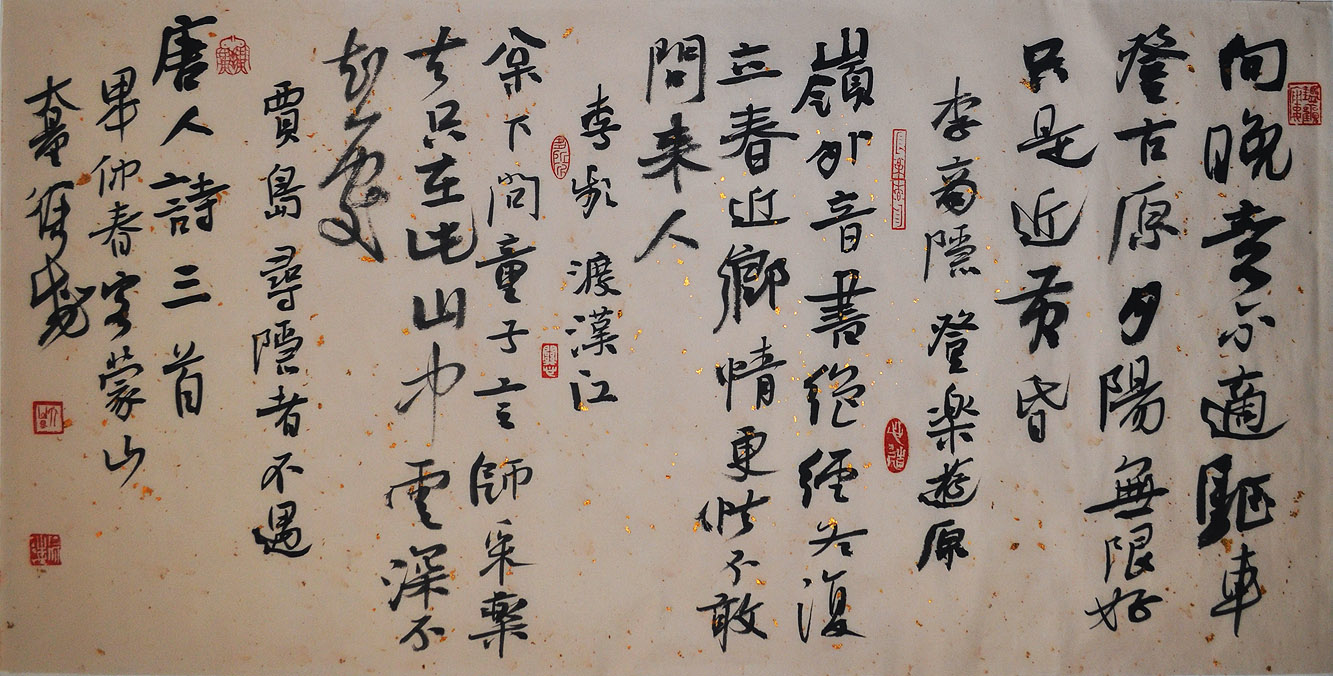 向晚意不適驅車
登古原夕陽無限好
只是近黄昏
李商隱 登楽遊原
嶺外音書絕經冬復
立春近鄉情更怯不敢
問来人
李频 渡漢江
枀下問童子言師采藥
去只在此山中雲深不
知處
賈島 尋隱者不遇
唐人詩三首
仲春 蒙山